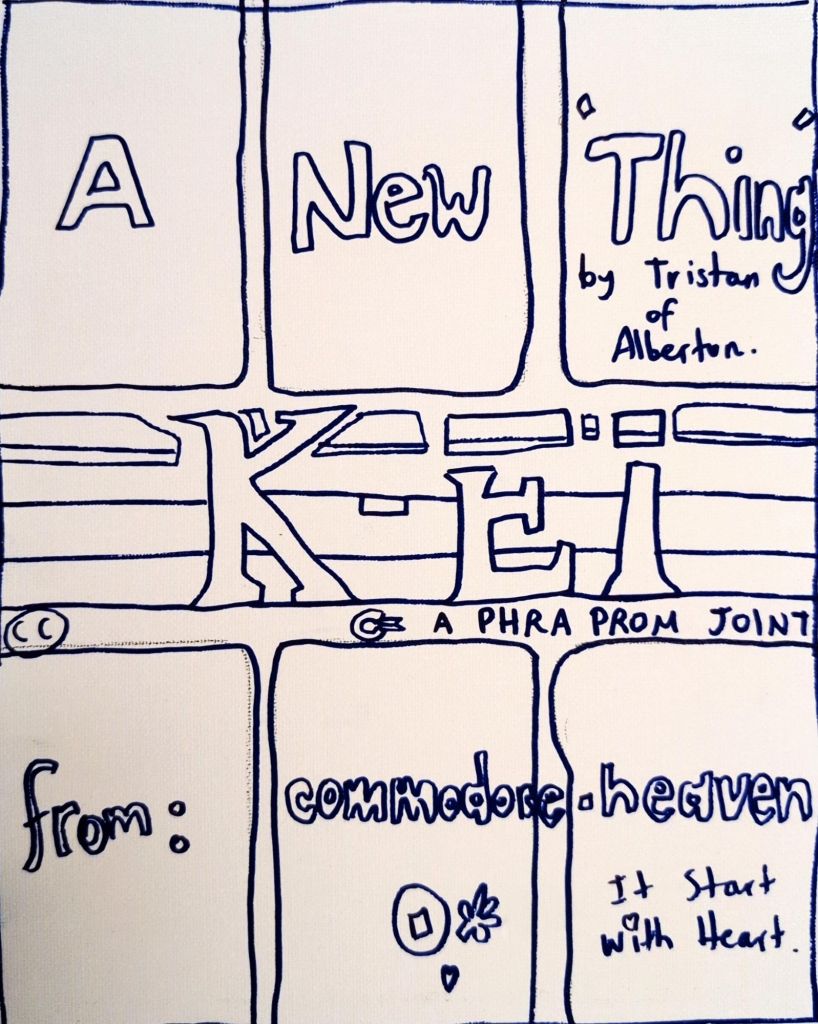 A New Thing
by Tristan
of
Alberton.
KEI
CC
A PHRA PROM JOINT
from: commodore-heaven
It Start
with Heart.